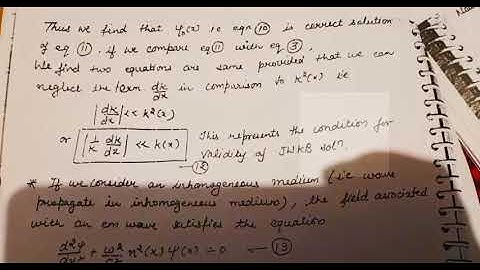 Thus we find that ψ₀(x) i.e eqn ⑩ is correct solution
of eq ⑪. if we compare eq ⑪ with eq ③,
We find two equations are same provided that we can
neglect the term dk/dx in comparison to k²(x) i.e
|dk/dx| << k²(x)
or |1/k dk/dx| << k(x) This represents the condition for
—⑫ validity of JWKB solⁿ.
* If we consider an inhomogeneous medium (i.e wave
propagate in inhomogeneous medium), the field associated
with an em wave satisfies the equation
d²ψ/dx² + ω²/c² n²(x) ψ(x) = 0 —⑬